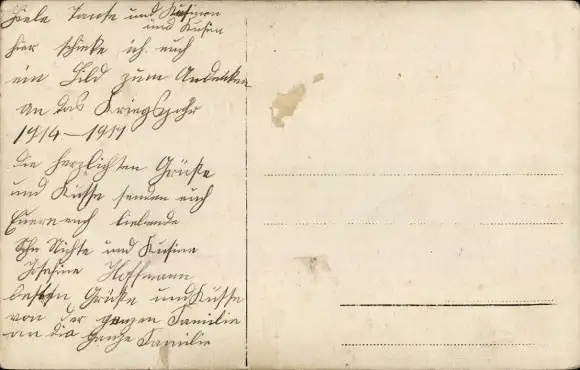 Viele Tante und Kusinen
und Kusen
hier schicke ich euch
ein Bild zum Andenken
an das Kriegsjahr
1914–1917
die herzlichsten Grüße
und Küsse senden euch
Euere euch liebende
Nichte und Kusine
Josefine Hoffmann
besten Grüße und Küsse
von der ganzen Familie
an die ganze Familie